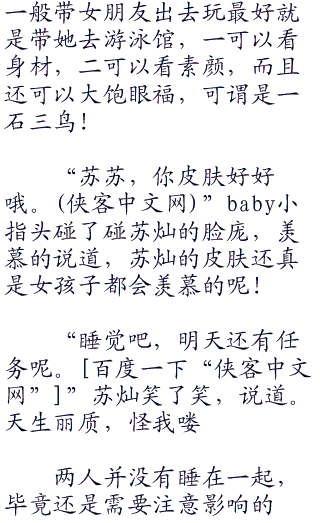 一般带女朋友出去玩最好就
是带她去游泳馆，一可以看
身材，二可以看素颜，而且
还可以大饱眼福，可谓是一
石三鸟！
“苏苏，你皮肤好好
哦。(侠客中文网)”baby小
指头碰了碰苏灿的脸庞，羡
慕的说道，苏灿的皮肤还真
是女孩子都会羡慕的呢！
“睡觉吧，明天还有任
务呢。[百度一下“侠客中文
网”]”苏灿笑了笑，说道。
天生丽质，怪我喽
两人并没有睡在一起，
毕竟还是需要注意影响的